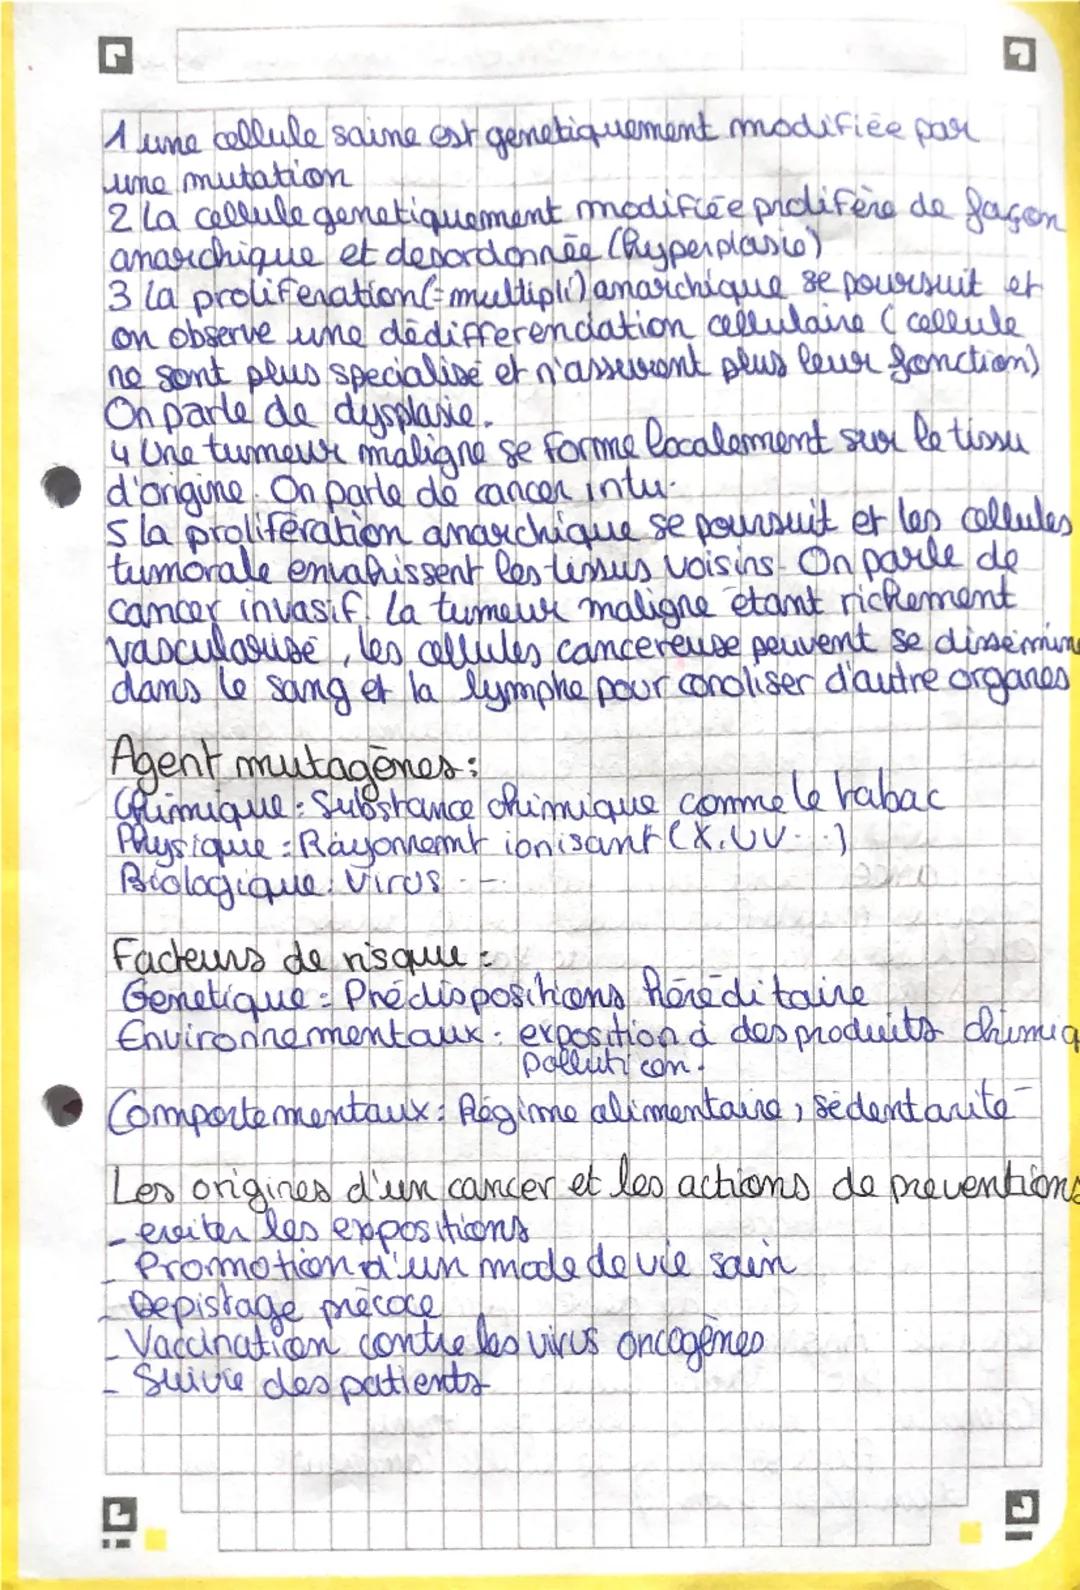 1 une cellule saine est genetiquement modifiée par
une mutation
2 La cellule genetiquement modifiée prolifère de façon
anarchique et desordonnée (hyperplasie)
3 la proliferation (=multipli) anarchique se poursuit et
on observe une dédifferenciation cellulaire (cellule
ne sont plus specialisé et n'assurent plus leur fonction)
On parle de dysplasie.
4 Une tumeur maligne se forme localement sur le tissu
d'origine. On parle de cancer intu.
5 la prolifération anarchique se poursuit et les cellules
tumorale envahissent les tissus voisins. On parle de
cancer invasif. La tumeur maligne étant richement
vascularisé, les cellules cancereuse peuvent se dissémine
dans le sang et la lymphe pour conoliser d'autre organes
Agent mutagènes :
Chimique : Substance chimique comme le tabac
Physique : Rayonnemt ionisant (X, UV...)
Biologique : Virus ...
Facteurs de risque :
Genetique : Prédispositions héréditaire
Environnementaux : exposition à des produits chimiq
pollution.
Comportementaux : Régime alimentaire, sédentarité
Les origines d'un cancer et les actions de preventions
- eviter les expositions
- Promotion d'un mode de vie sain
- Depistage précoce
- Vaccination contre les virus oncogènes
- Suivie des patients